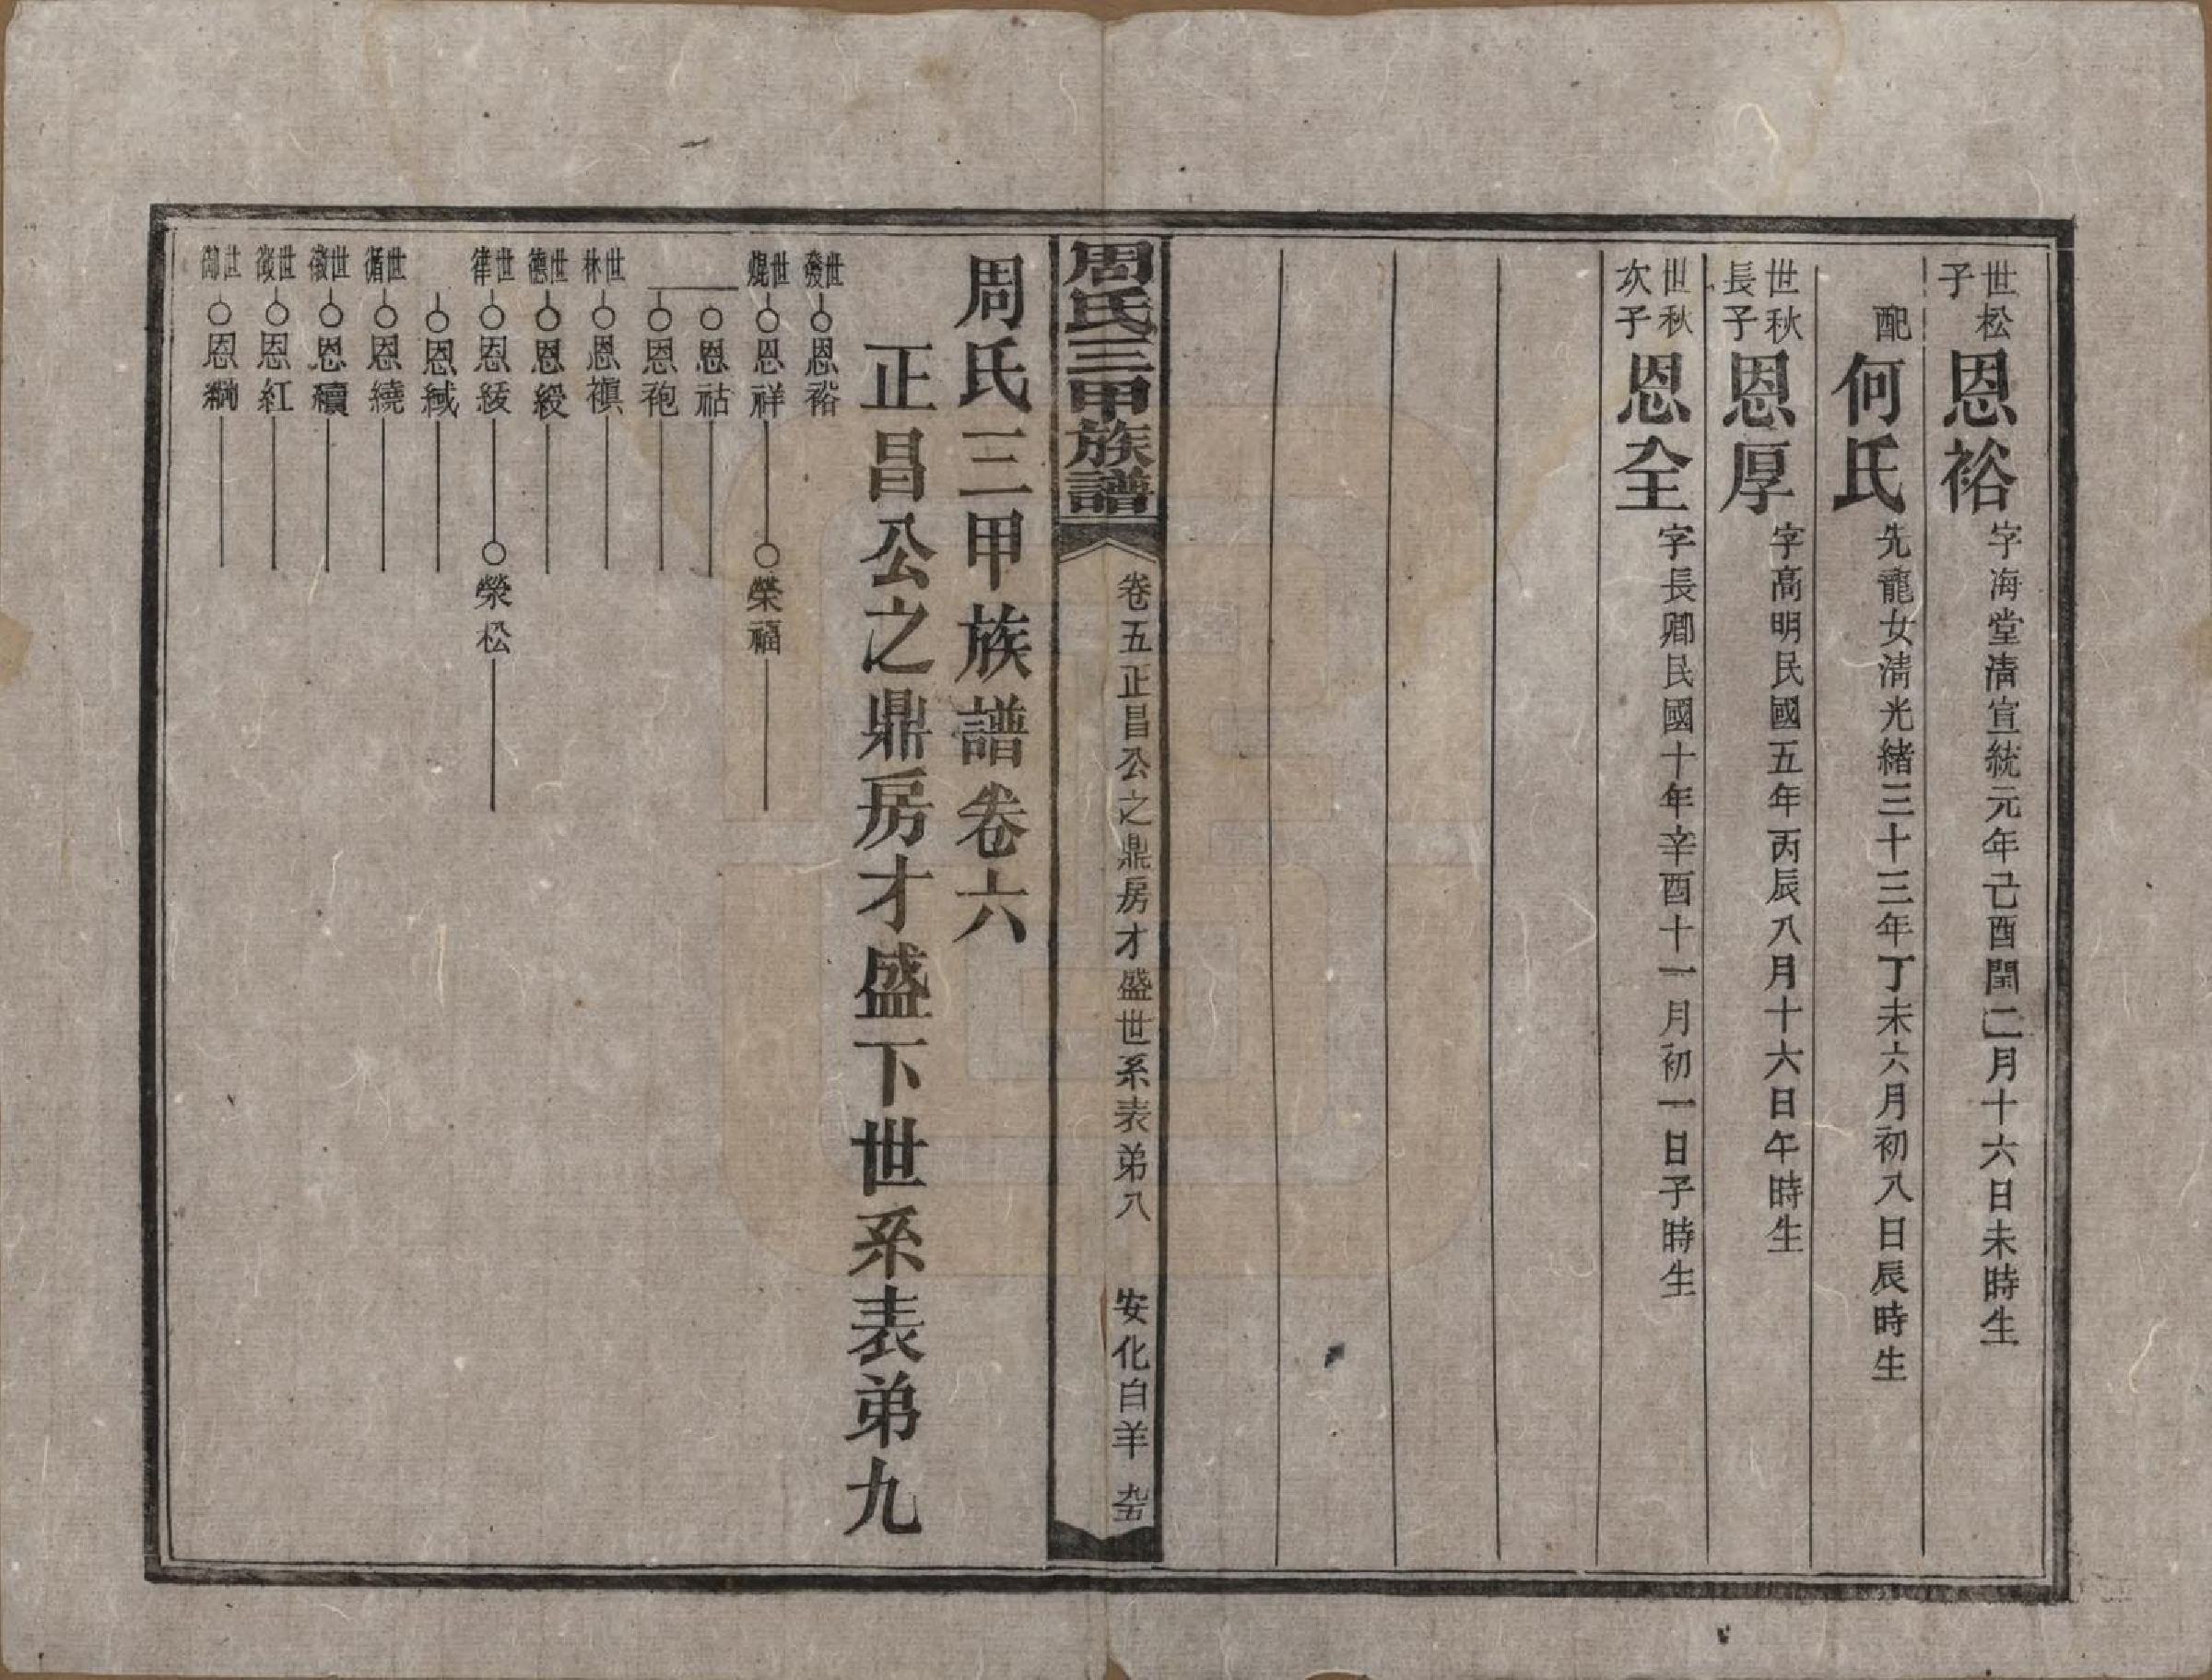 世松子 恩裕 字海堂清宣統元年己酉閏二月十六日未時生
配 何氏 先龍女清光緒三十三年丁未六月初八日辰時生
世秋長子 恩厚 字高明民國五年丙辰八月十六日午時生
世秋次子 恩全 字長卿民國十年辛酉十一月初一日子時生
周氏三甲族譜
卷五正昌公之鼎房才盛世系表弟八
安化白羊 九五
周氏三甲族譜卷六
正昌公之鼎房才盛下世系表弟九
世 恩裕
世焜 恩祥 榮福
恩祜
恩袍
世林 恩禛
世德 恩綬
世律 恩綾 榮松
恩絨
世循 恩繞
世徵 恩續
世 恩紅
世御 恩綱